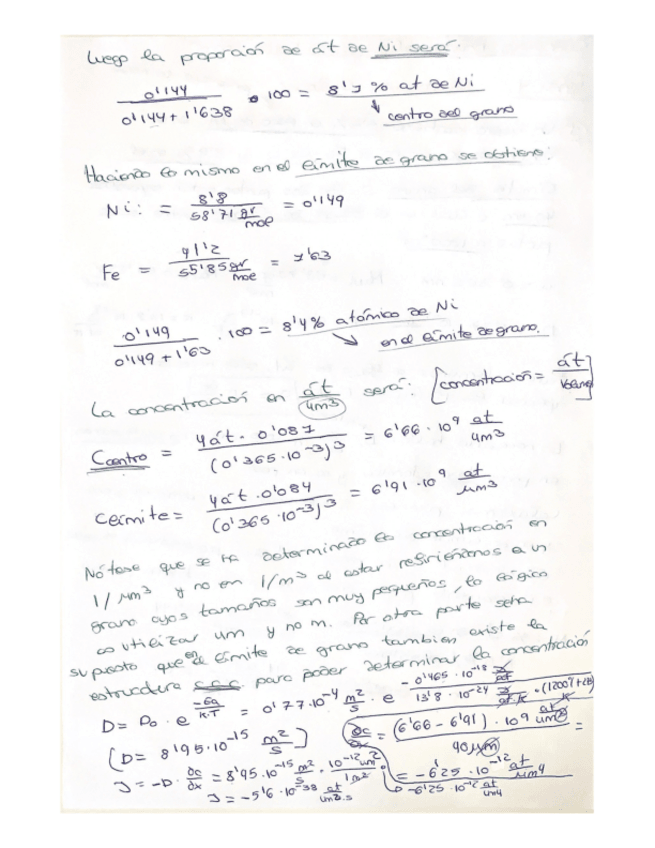 Luego la proporción de át de Ni será:
0'144 / 0'144 + 1'638 · 100 = 8'1 % at de Ni
centro del grano
Haciendo lo mismo en el límite de grano se obtiene:
Ni: = 8'8 / 58'71 gr/mol = 0'149
Fe = 91'2 / 55'85 gr/mol = 1'63
0'149 / 0'149 + 1'63 · 100 = 8'4% atómico de Ni
en el límite de grano.
La concentración en át/μm3 será: [concentración = át/
Ccentro = 4 át · 0'081 / (0'365 · 10-3)3 = 6'66 · 10 9 at/μm3
Clímite = 4 át · 0'084 / (0'365 · 10-3)3 = 6'91 · 10 9 at/μm3
Nótese que se ha determinado la concentración en
1/μm3 y no en 1/m3 al estar refiriéndonos a un
grano cuyos tamaños son muy pequeños, lo lógico
es utilizar um y no m. Por otra parte se ha
supuesto que en el límite de grano tambien existe la
estructura c.c.c. para poder determinar la concentración
D = Do · e -Ea/K·T = 0'77·10-4 m2/s · e - 0'465 · 10-18 / 13'8 · 10-24 · (1200
(D = 8'95·10-15 m2/s) ∂c/∂x = (6'66 - 6'91) · 10 9 at/um3 / 40 μm =
J = -D · ∂c/∂x = 8'95·10-15 m2/s · 10-12 um2/1m2 = -6'25 · 10-12 at/μm4
J = -5'6 · 10-38 at/um2·s -6'25 · 10-12 at/um4